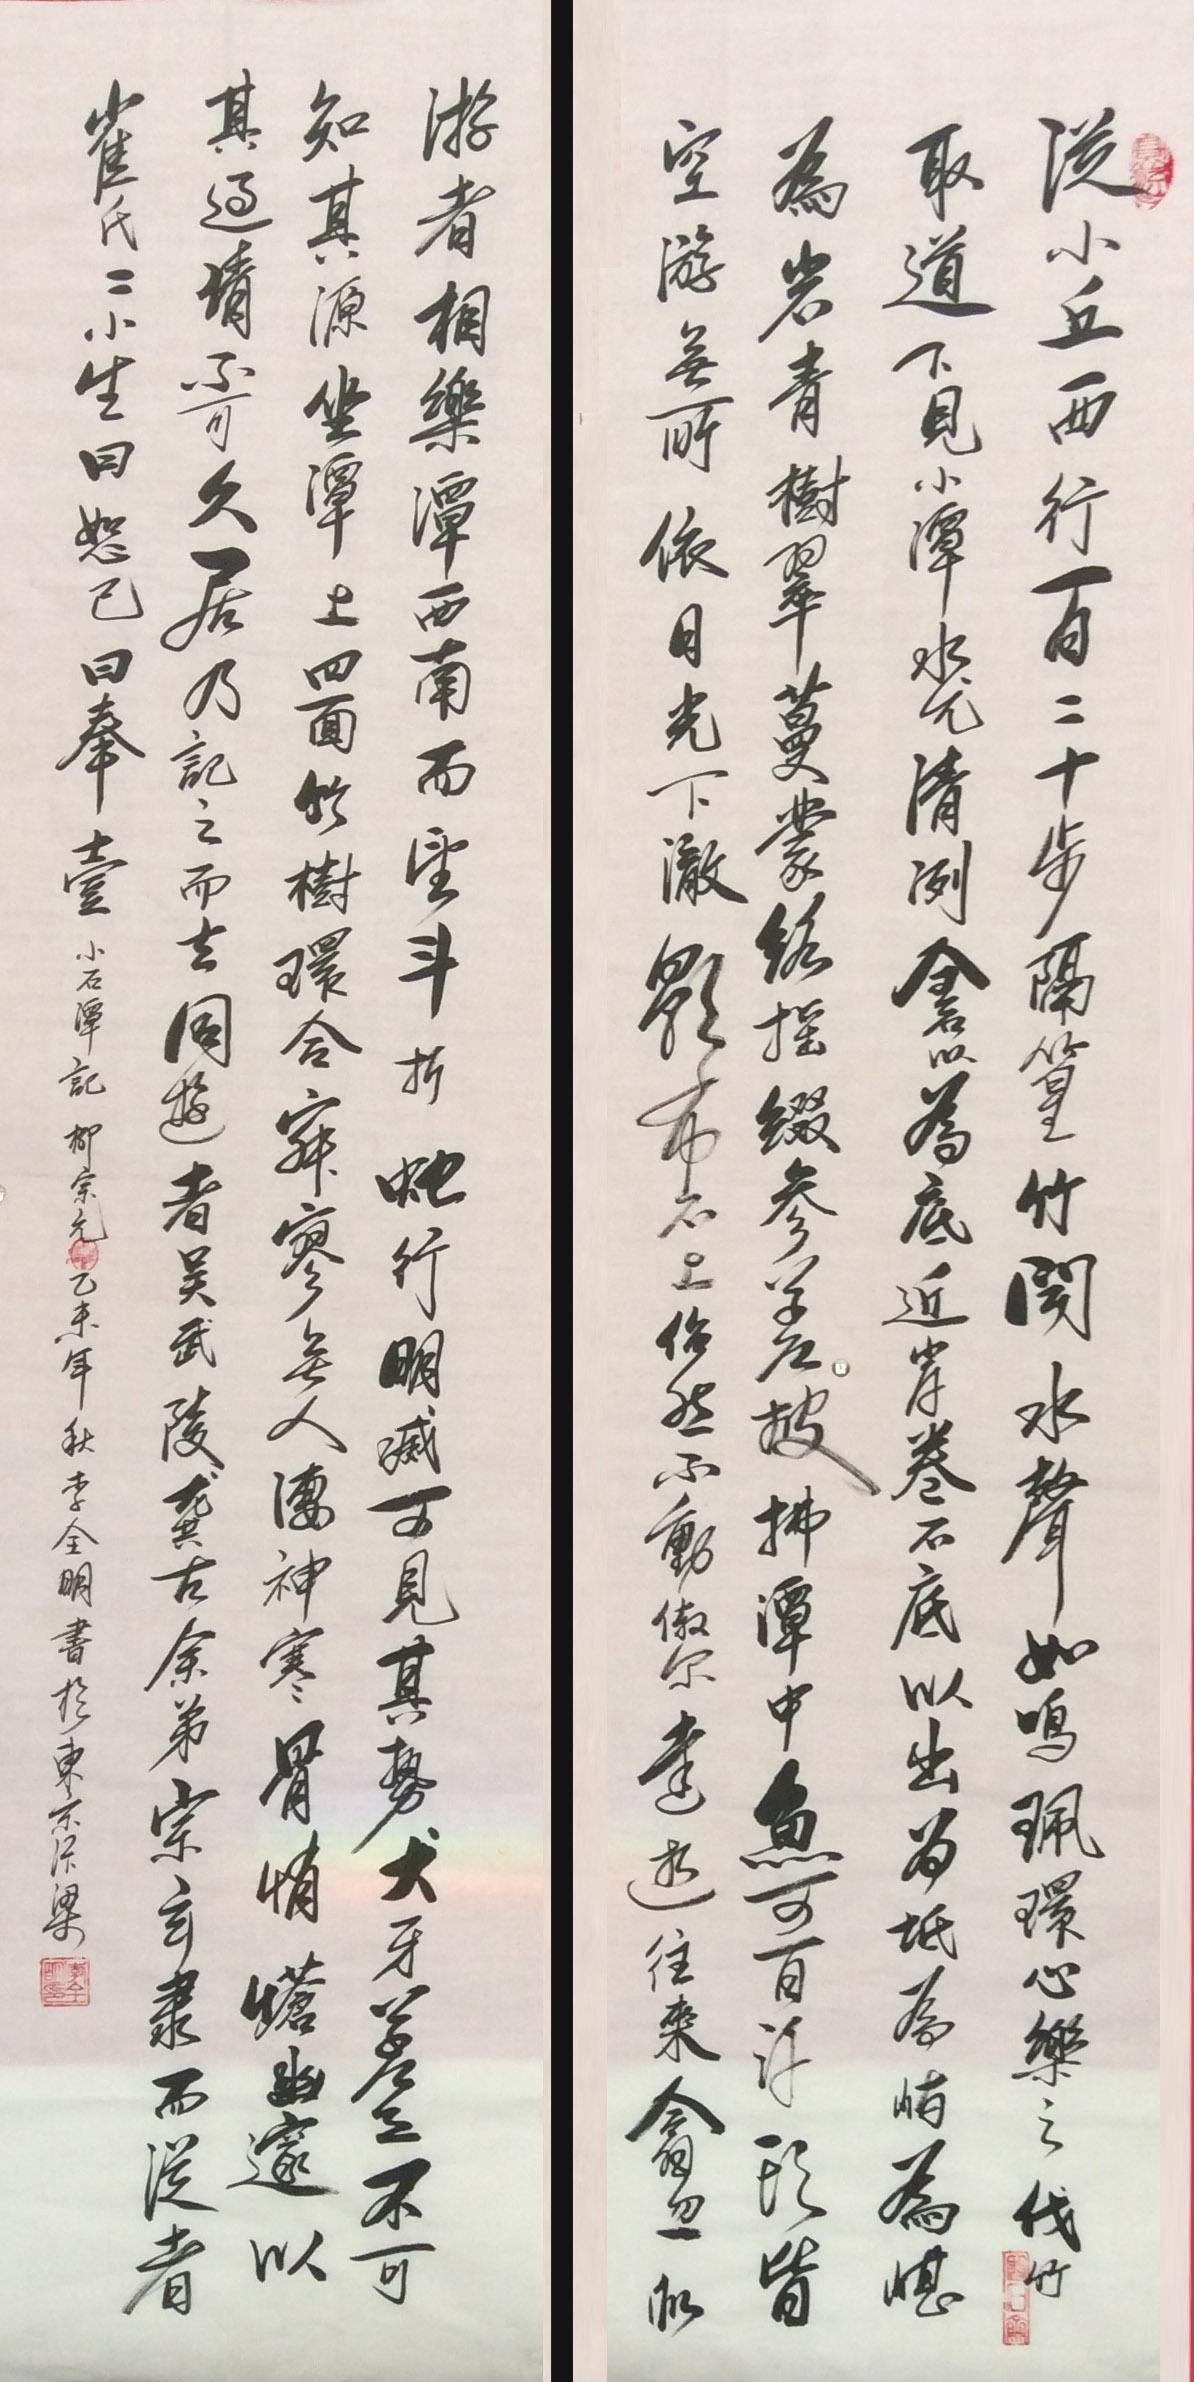 從小丘西行百二十步隔篁竹聞水聲如鳴珮環心樂之伐竹
取道下見小潭水尤清洌全石以為底近岸卷石底以出為坻為嶼為嵁
為岩青樹翠蔓蒙絡搖綴參差披拂潭中魚可百許頭皆
空游無所依日光下澈影布石上佁然不動俶爾遠逝往來翕忽似
游者相樂潭西南而望斗折蛇行明滅可見其勢犬牙差互不可
知其源坐潭上四面竹樹環合寂寥無人凄神寒骨悄愴幽邃以
其過清不可久居乃記之而去同遊者吳武陵龔古余弟宗玄隸而從者
崔氏二小生曰恕己曰奉壹
小石潭記 柳宗元 乙未年秋李全明書於東京汴梁